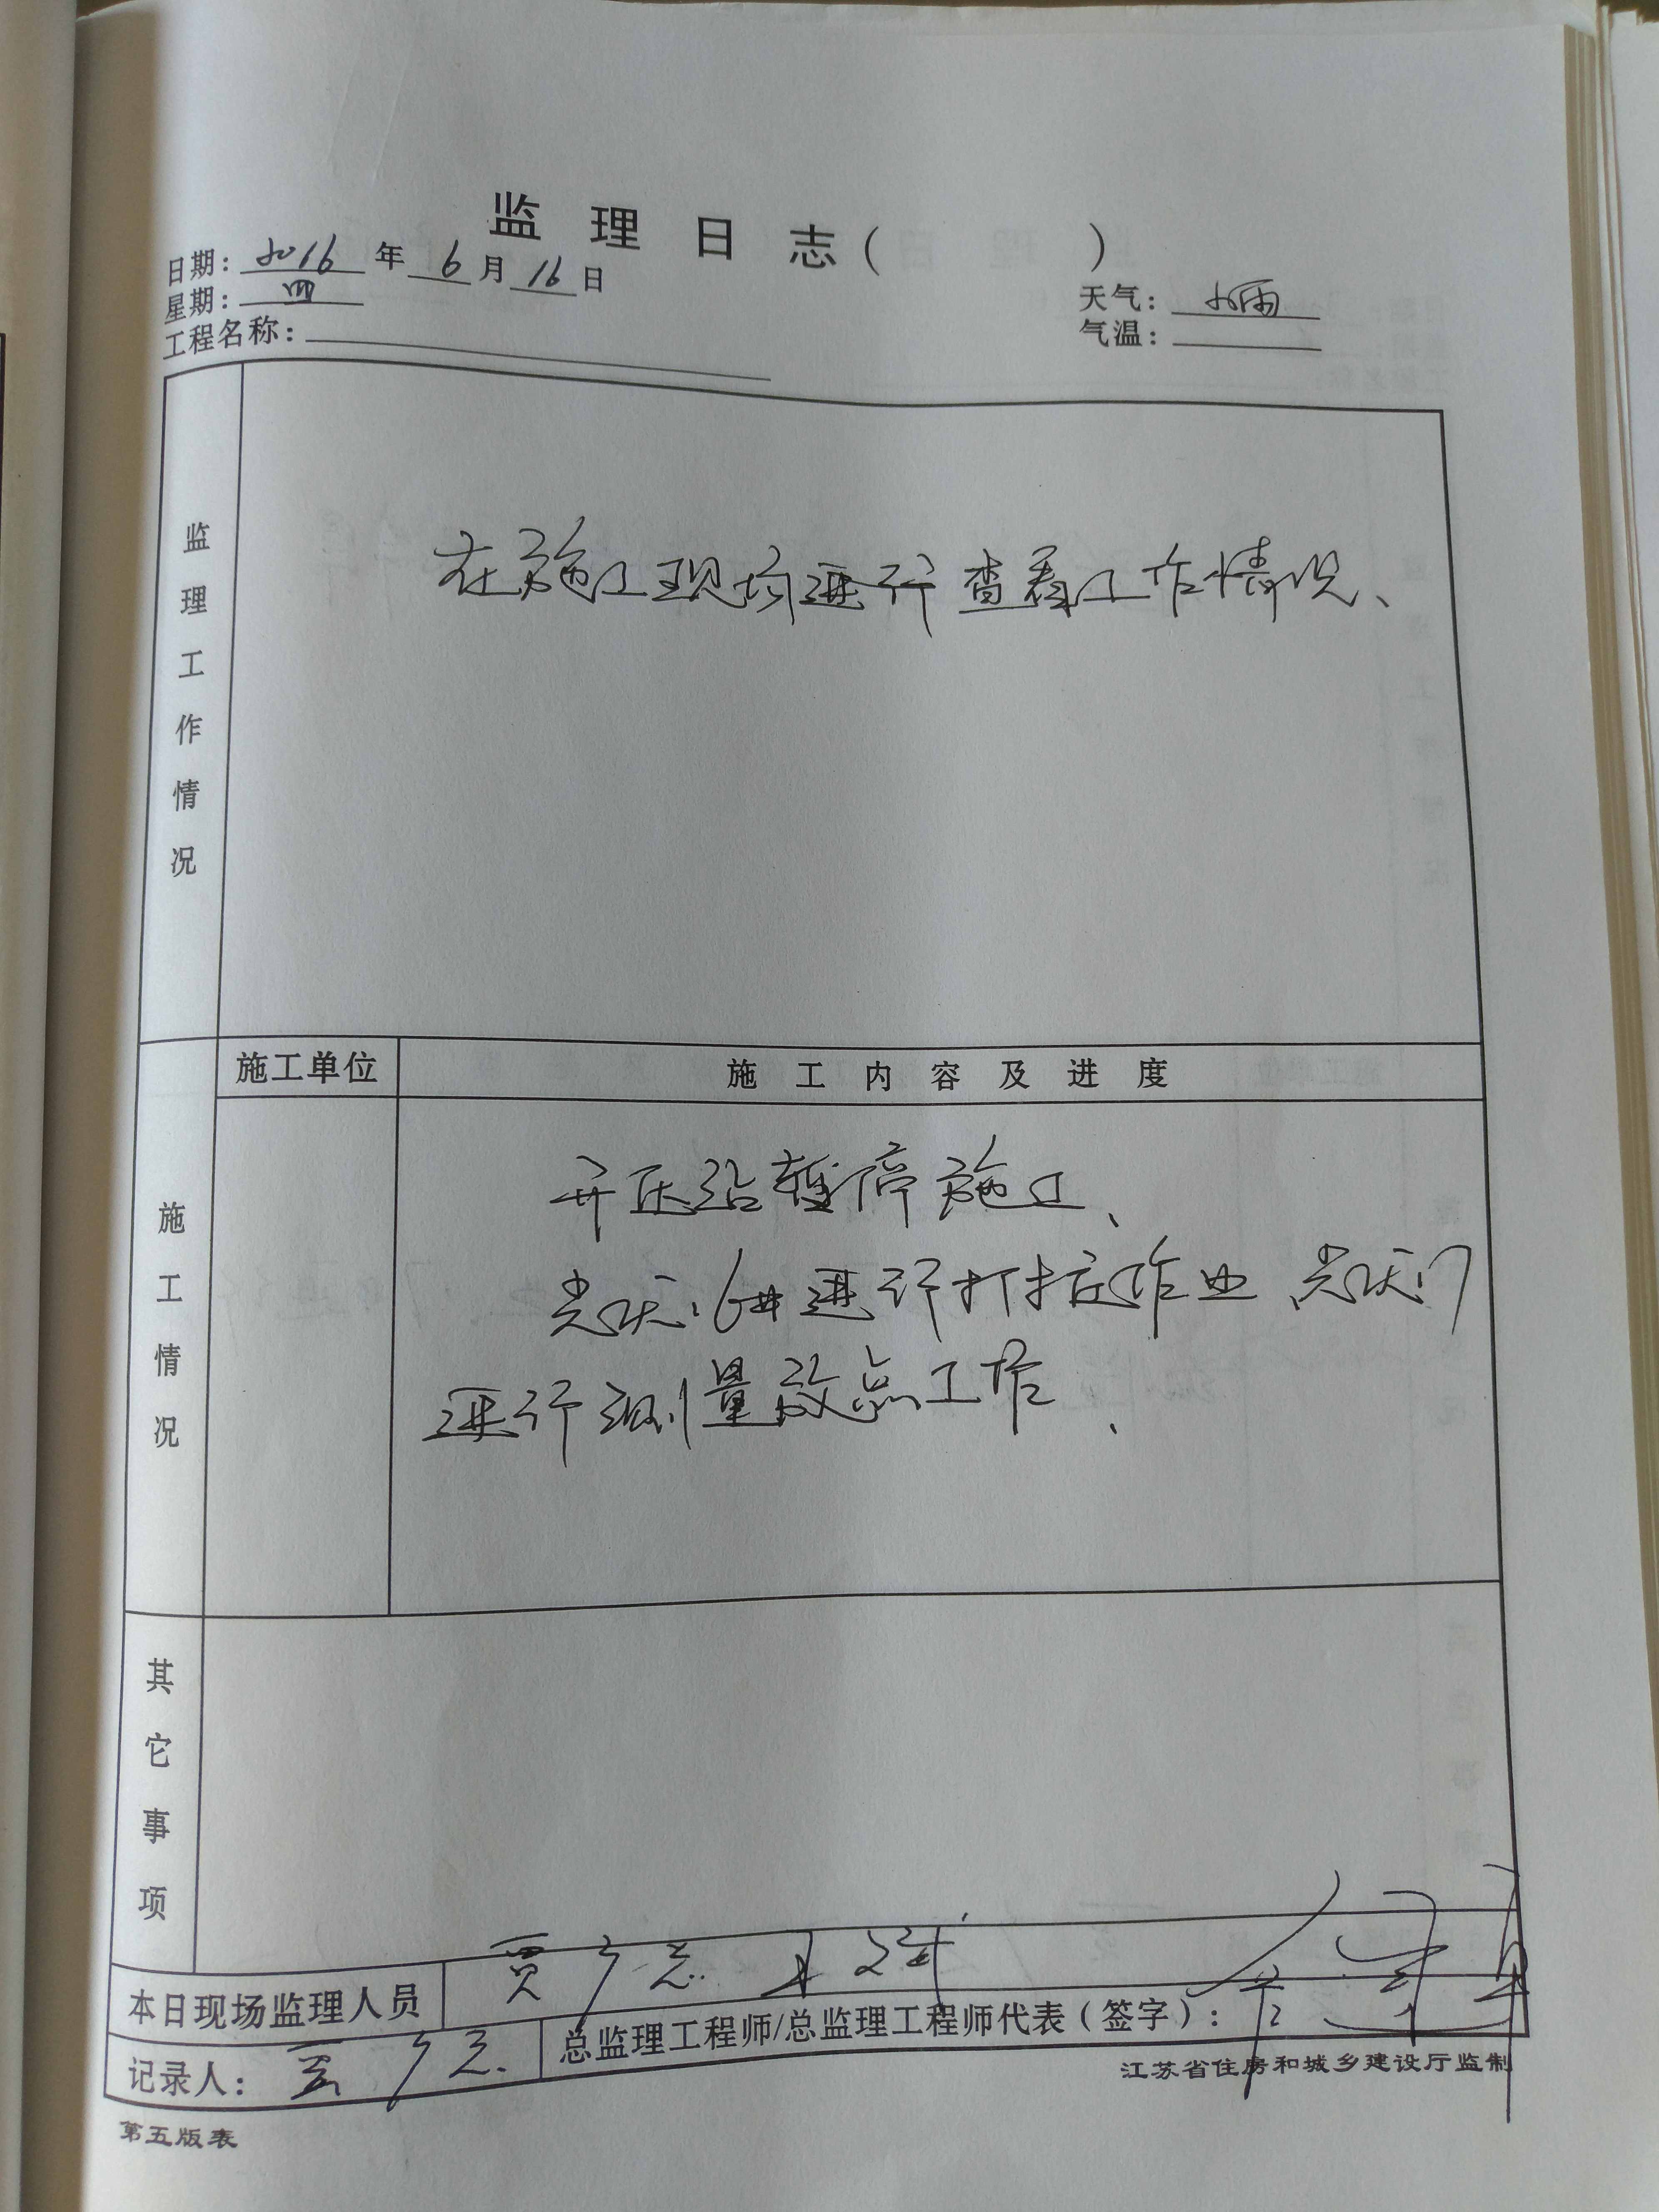 监理日志（ ）
日期：2016年6月16日
星期：四
天气：小雨
工程名称：
气温：
监理工作情况
在施工现场进行查看工作情况、
施工单位
施工内容及进度
施工情况
开压站暂停施工、
光伏16#进行打桩作业、光伏17
进行测量放点工作、
其它事项
本日现场监理人员 贾广志
记录人：贾广志
总监理工程师/总监理工程师代表（签字）：
江苏省住房和城乡建设厅监制
第五版表